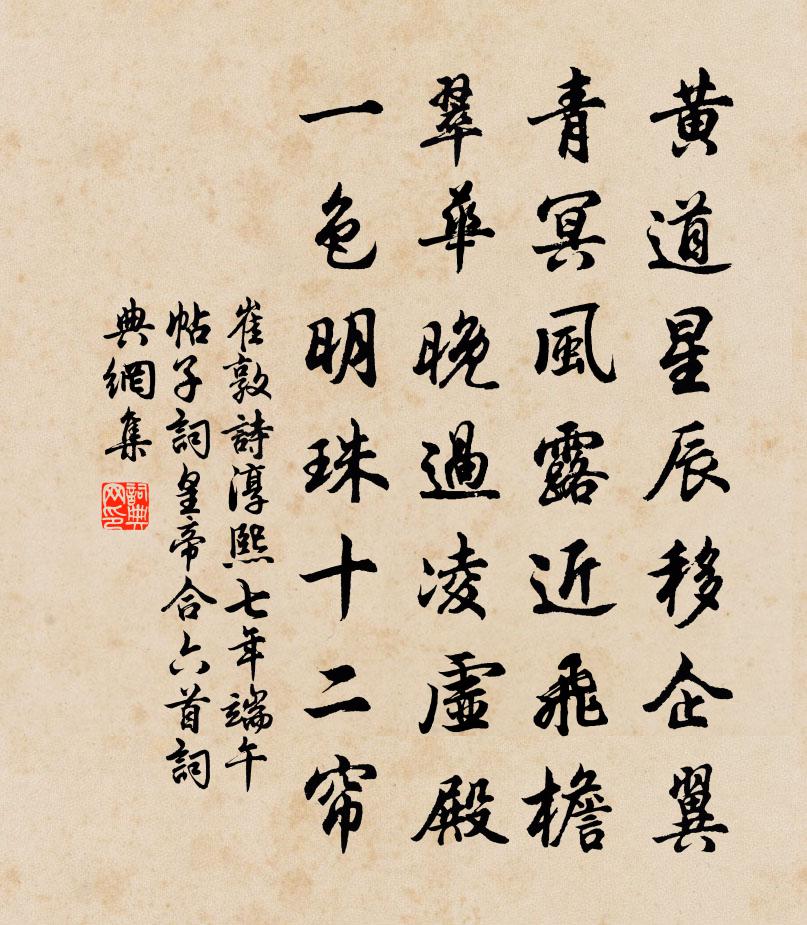 黃道星辰移企翼
青冥風露近飛檐
翠華晚過凌虛殿
一色明珠十二帘
崔敦詩淳熙七年端午
帖子詞皇帝合六首詞
典網集
詞典
网印